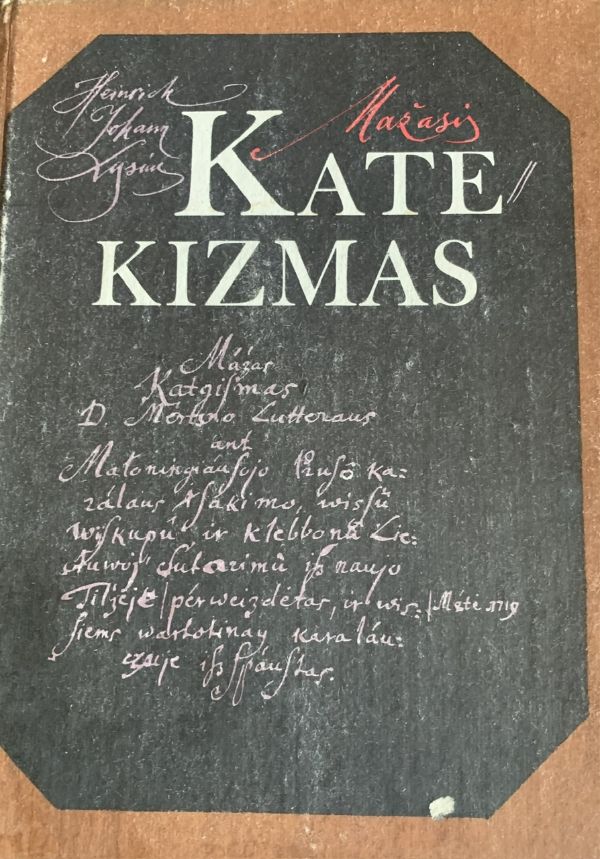 Heinrich
Johann
Lysius
Mažasis
KATE
KIZMAS
Mážas
Katgismas
D. Mertino Lutteraus
ant
Małoningiáusojo Prusû ka=
rálaus Asákimo, wissû
Wyskupû ir Klebbonû Lie=
tuwoj' sutarimû iß naujo
Tilźeje pérweizdétas, ir wis= Mete 1719
siems wartotinay karaláu=
czuje ißspáustas.